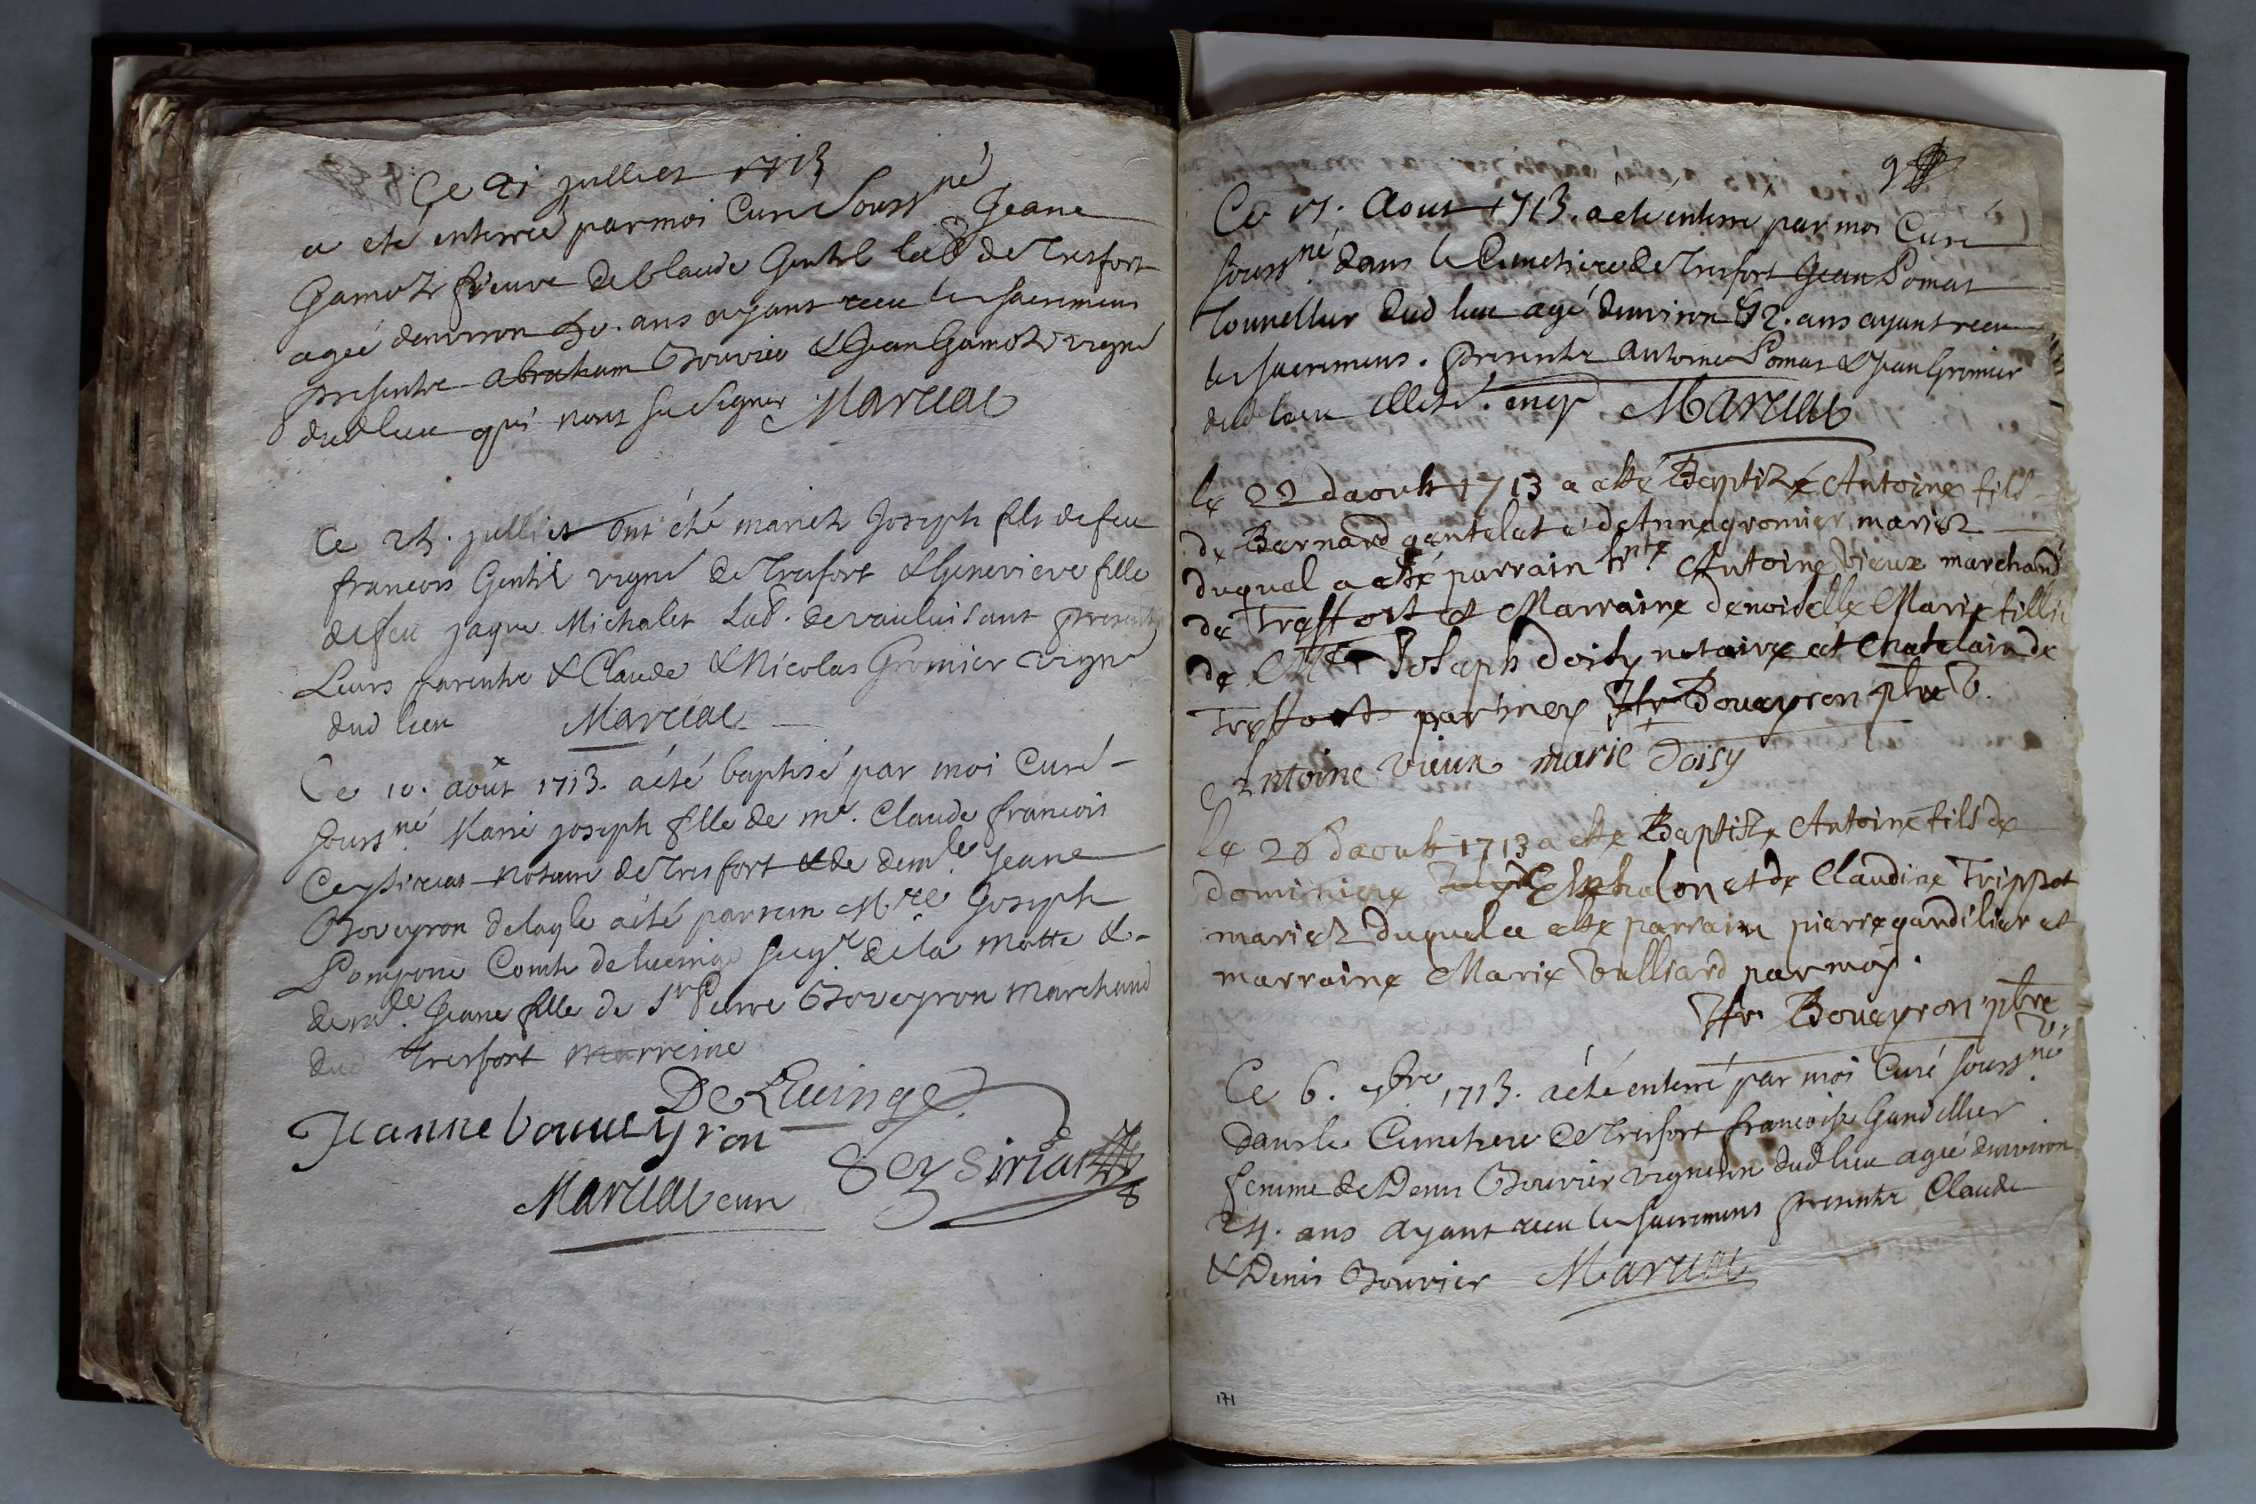 Ce 21 julliet 1713
a eté enterreé par moi Curé Souss.né Jeane
Gamoz veuve de Claude Gentil lab.r de Tresfort
ageé denviron 80. ans ayant receu les sacremens
presentz abraham Bouvier & Jean Gamoz vigne.
dud lieu qui nont sceu signer Marcial
Ce 25. julliet ont été mariez Joseph fils de feu
francois Gentil vigne. de Tresfort & Genevieve fille
de feu jaque Michalet Lab. de vauluisant present
Leurs parentz & Claude & Nicolas Gromier vigne.
dud lieu Marcial
Ce 10. août 1713. a été baptisé par moi Curé
souss.né Marie joseph fille de me. Claude francois
Ceysiriat notaire de Tresfort & de dem.le Jeane
Boveyron de laq.le a été parrein M.re Joseph
Pompone Comte de lucinge secg.r de la Motte &
dem.le Jeane fille de Sr. Pierre Boveyron Marchand
dud Tresfort marreine
De Lucinge
Jeanne bouueyron
Ceysiriat
Marcial cure
8
9
Ce 17. Aout 1713. a eté enterré par moi Curé
souss.né dans le Cimetiere de Tresfort Jean Pomat
Tounellier dud lieu agé denviron 52. ans ayant receu
les sacremens. presentz Antoine Pomat & Jean Gromier
dud lieu illité. enq.s Marcial
le 22 daoust 1713 a esté Baptize Antoine fils
de Bernard gantelet et de Anne gromier mariez
duquel a esté parrain hn.te Antoine Vieux marchand
de Treffort et Marraine demoiselle Marie fillie
de M.re Joseph doisy notaire et chatelain de
Treffort par moy Fr Boueyron pbre V.
Antoine vieux marie doisy
le 26 daoust 1713 a esté Baptize Antoine fils de
dominique Chalon et de Claudine Trippot
mariez duquel a esté parrain pierre gandilier et
marraine Marie Vulliard par moy.
Fr Boueyron pbre
V.
Ce 6. 7bre. 1713. a été enterré par moi Curé souss.né
dans le Cimetiere de Tresfort francoise Gandillier
femme de Denis Bouvier vigneron dud lieu ageé denviron
24. ans ayant receu les sacremens presentz Claude
& Denis Bouvier Marcial
171